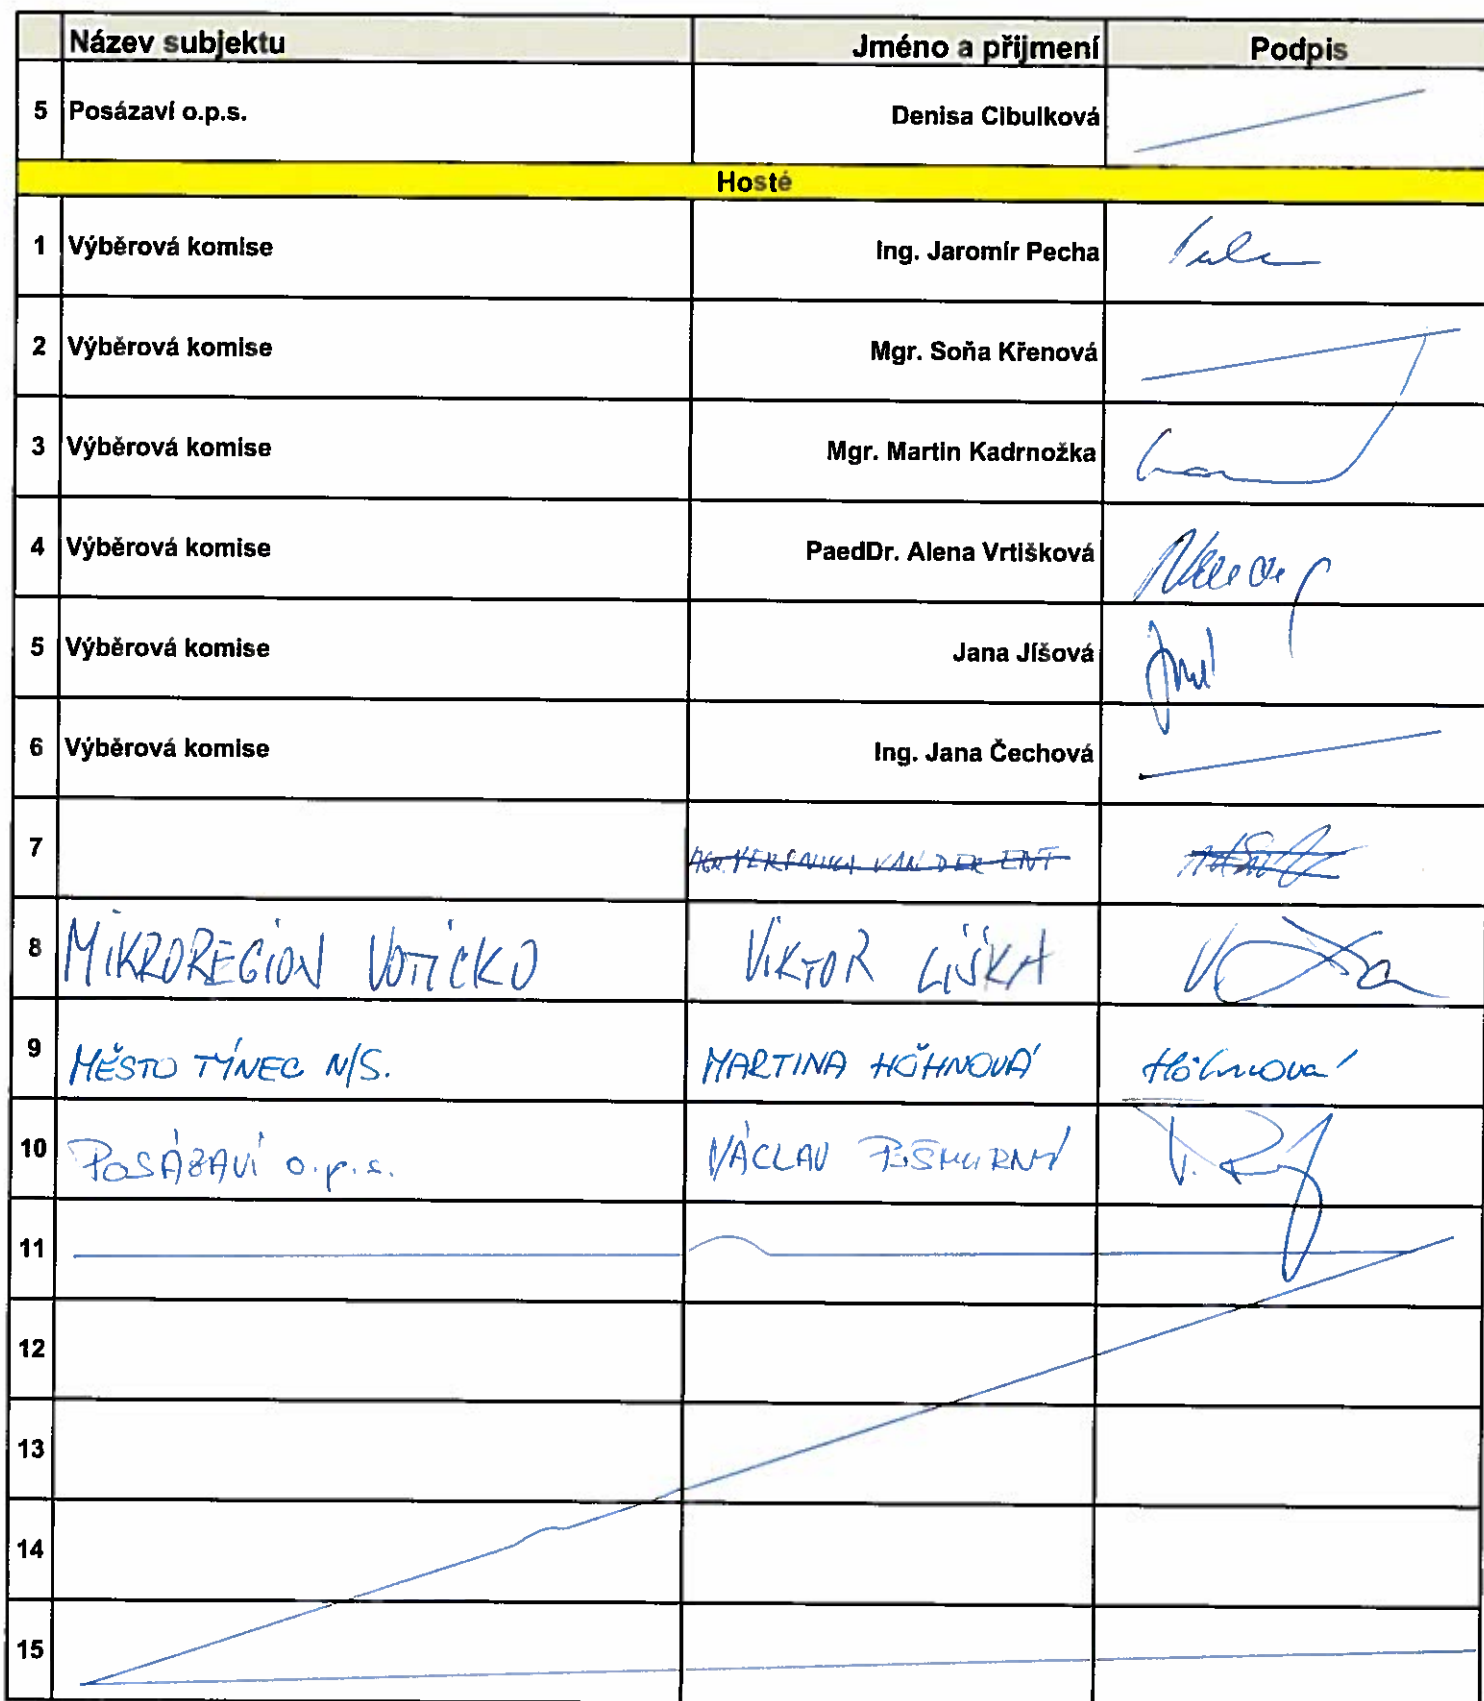 Název subjektu Jméno a přijmení Podpis
5 Posázaví o.p.s. Denisa Cibulková
Hosté
1 Výběrová komise Ing. Jaromír Pecha
2 Výběrová komise Mgr. Soňa Křenová
3 Výběrová komise Mgr. Martin Kadrnožka
4 Výběrová komise PaedDr. Alena Vrtišková
5 Výběrová komise Jana Jíšová
6 Výběrová komise Ing. Jana Čechová
7 MGR. VERONIKA VAN DER ENT
8 MIKROREGION VOTICKO VIKTOR LIŠKA
9 MĚSTO TÝNEC N/S. MARTINA HÖHNOVÁ Höhnová
10 POSÁZAVÍ o.p.s. VÁCLAV POŠMURNÝ
11
12
13
14
15